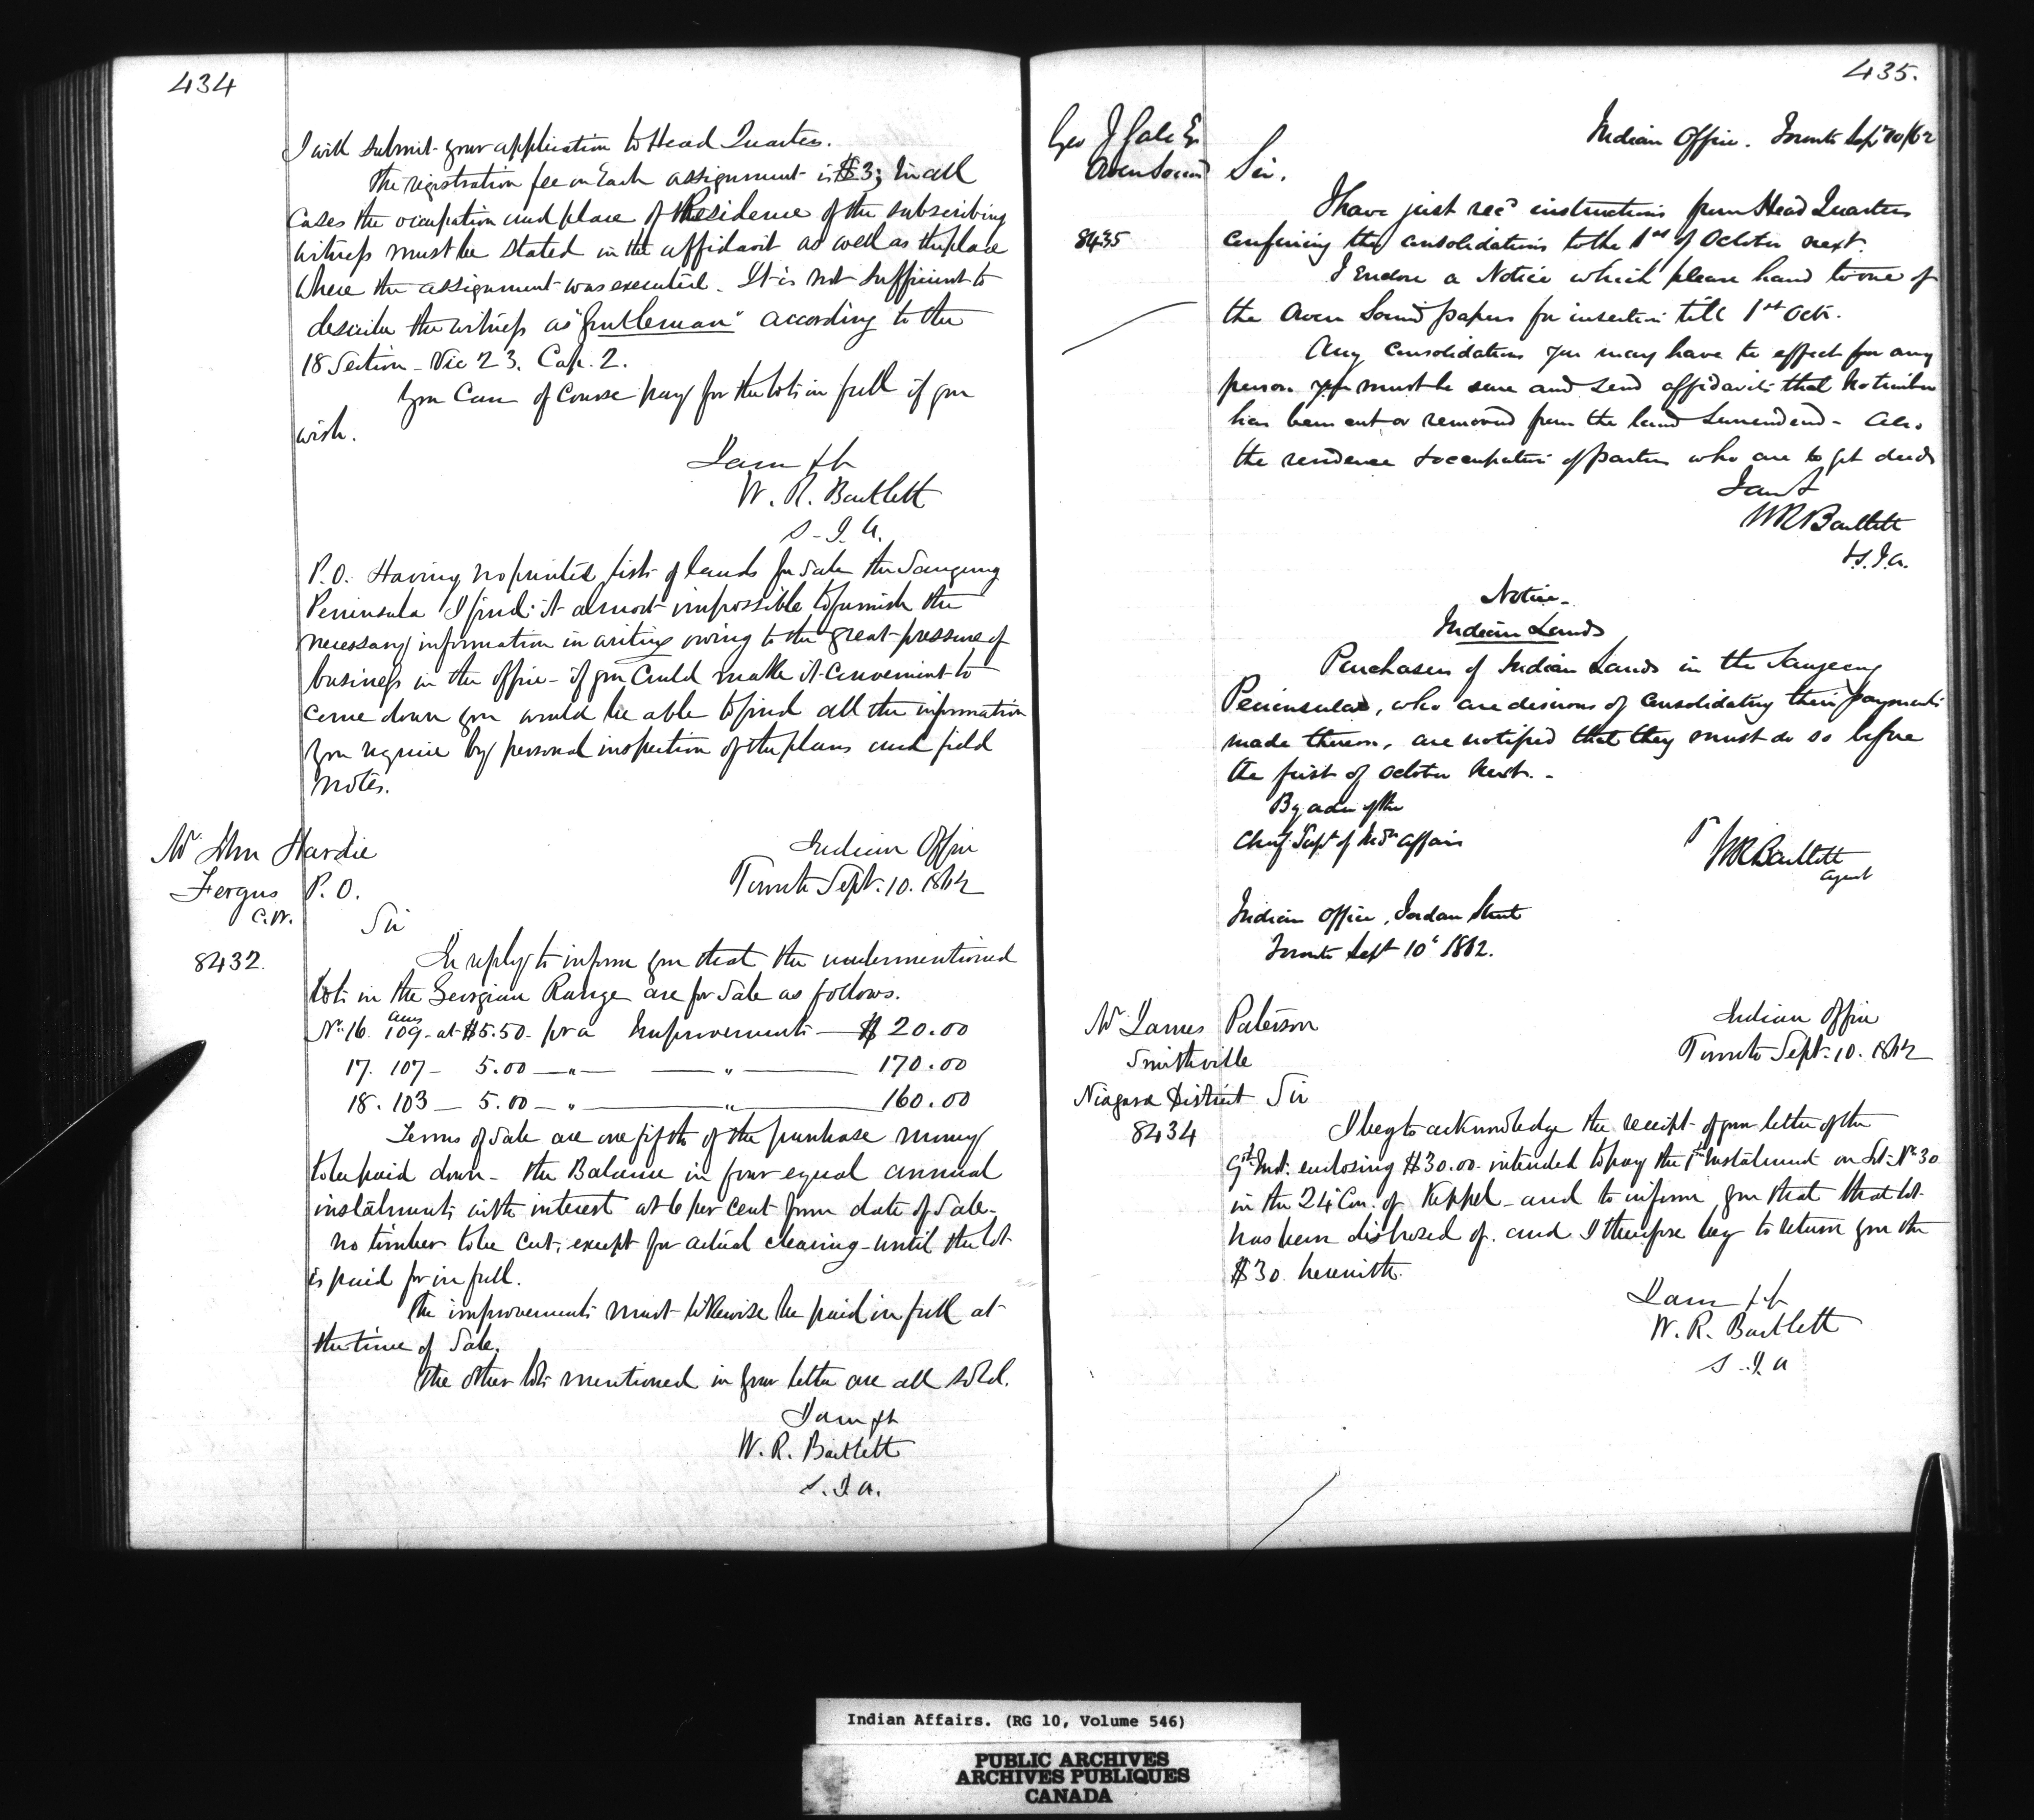 434
I will submit your application to Head Quarters.
The registration fee on Each assignment is $3; In all
Cases the occupation and place of Residence of the subscribing
witness must be stated in the affidavit as well as the place
where the assignment was executed. It is not sufficient to
describe the witness as "Gentleman" according to the
18 Section - Vic 23. Cap. 2.
You Can of Course pay for the lots in full if you
wish.
I am &c
W. R. Bartlett
S. I. A.
P.O. Having no printed lists of lands for Sale the Saugeeng
Peninsula I find it almost impossible to furnish the
necessary information in writing owing to the great pressure of
business in the office - if you Could make it convenient to
Come down you would be able to find all the information
you require by personal inspection of the plans and field
notes.
Mr John Hardie
Fergus P.O.
C.W.
8432.
Indian Office
Toronto Sept. 10. 1862
Sir
In reply to inform you that the undermentioned
lots in the Georgian Range are for Sale as follows.
No. 16. 109 acres at $5.50 - pr a Improvements — $ 20.00
17. 107 - 5.00 — " — — " — 170.00
18. 103 — 5.00 — " — " — 160.00
Terms of Sale are one fifth of the purchase money
to be paid down - the Balance in four equal annual
instalments with interest at 6 per cent from date of Sale -
no timber to be Cut, except for actual clearing - until the lot
is paid for in full.
The improvements must likewise be paid in full at
the time of Sale.
The other lots mentioned in your letter are all sold.
I am &c
W. R. Bartlett
S. I. A.
435.
Geo J Gale Er
Owen Sound
8435
Indian Office. Toronto Sept 10/62
Sir.
I have just recd instructions from Head Quarters
confining the consolidations to the 1st of October next.
I Enclose a Notice which please hand to one of
the Owen Sound papers for insertion till 1st Oct.
Any Consolidations you may have to effect for any
person you must be sure and send affidavits that no timber
has been cut or removed from the land surrendered - also
the residence & occupation of parties who are to get deeds
I am &
WR Bartlett
V.S.I.A.
Notice -
Indian Lands
Purchasers of Indian Lands in the Saugeeng
Peninsula, who are desirous of consolidating their payments
made thereon, are notified that they must do so before
the first of October Next. -
By order of the
Chief Supt of Indn Affairs
WR Bartlett
Agent
Indian Office, Jordan Street
Toronto Sept 10th 1862.
Mr James Paterson
Smithville
Niagara District
8434
Indian Office
Toronto Sept. 10. 1862
Sir
I beg to acknowledge the receipt of your letter of the
9th Inst. enclosing $30.00 intended to pay the 1st Instalment on Lot No 30
in the 24 Con. of Keppel - and to inform you that that lot
has been disposed of. and I therefore beg to return you the
$30 herewith.
I am &c
W. R. Bartlett
S. I. A
Indian Affairs. (RG 10, Volume 546)
PUBLIC ARCHIVES
ARCHIVES PUBLIQUES
CANADA